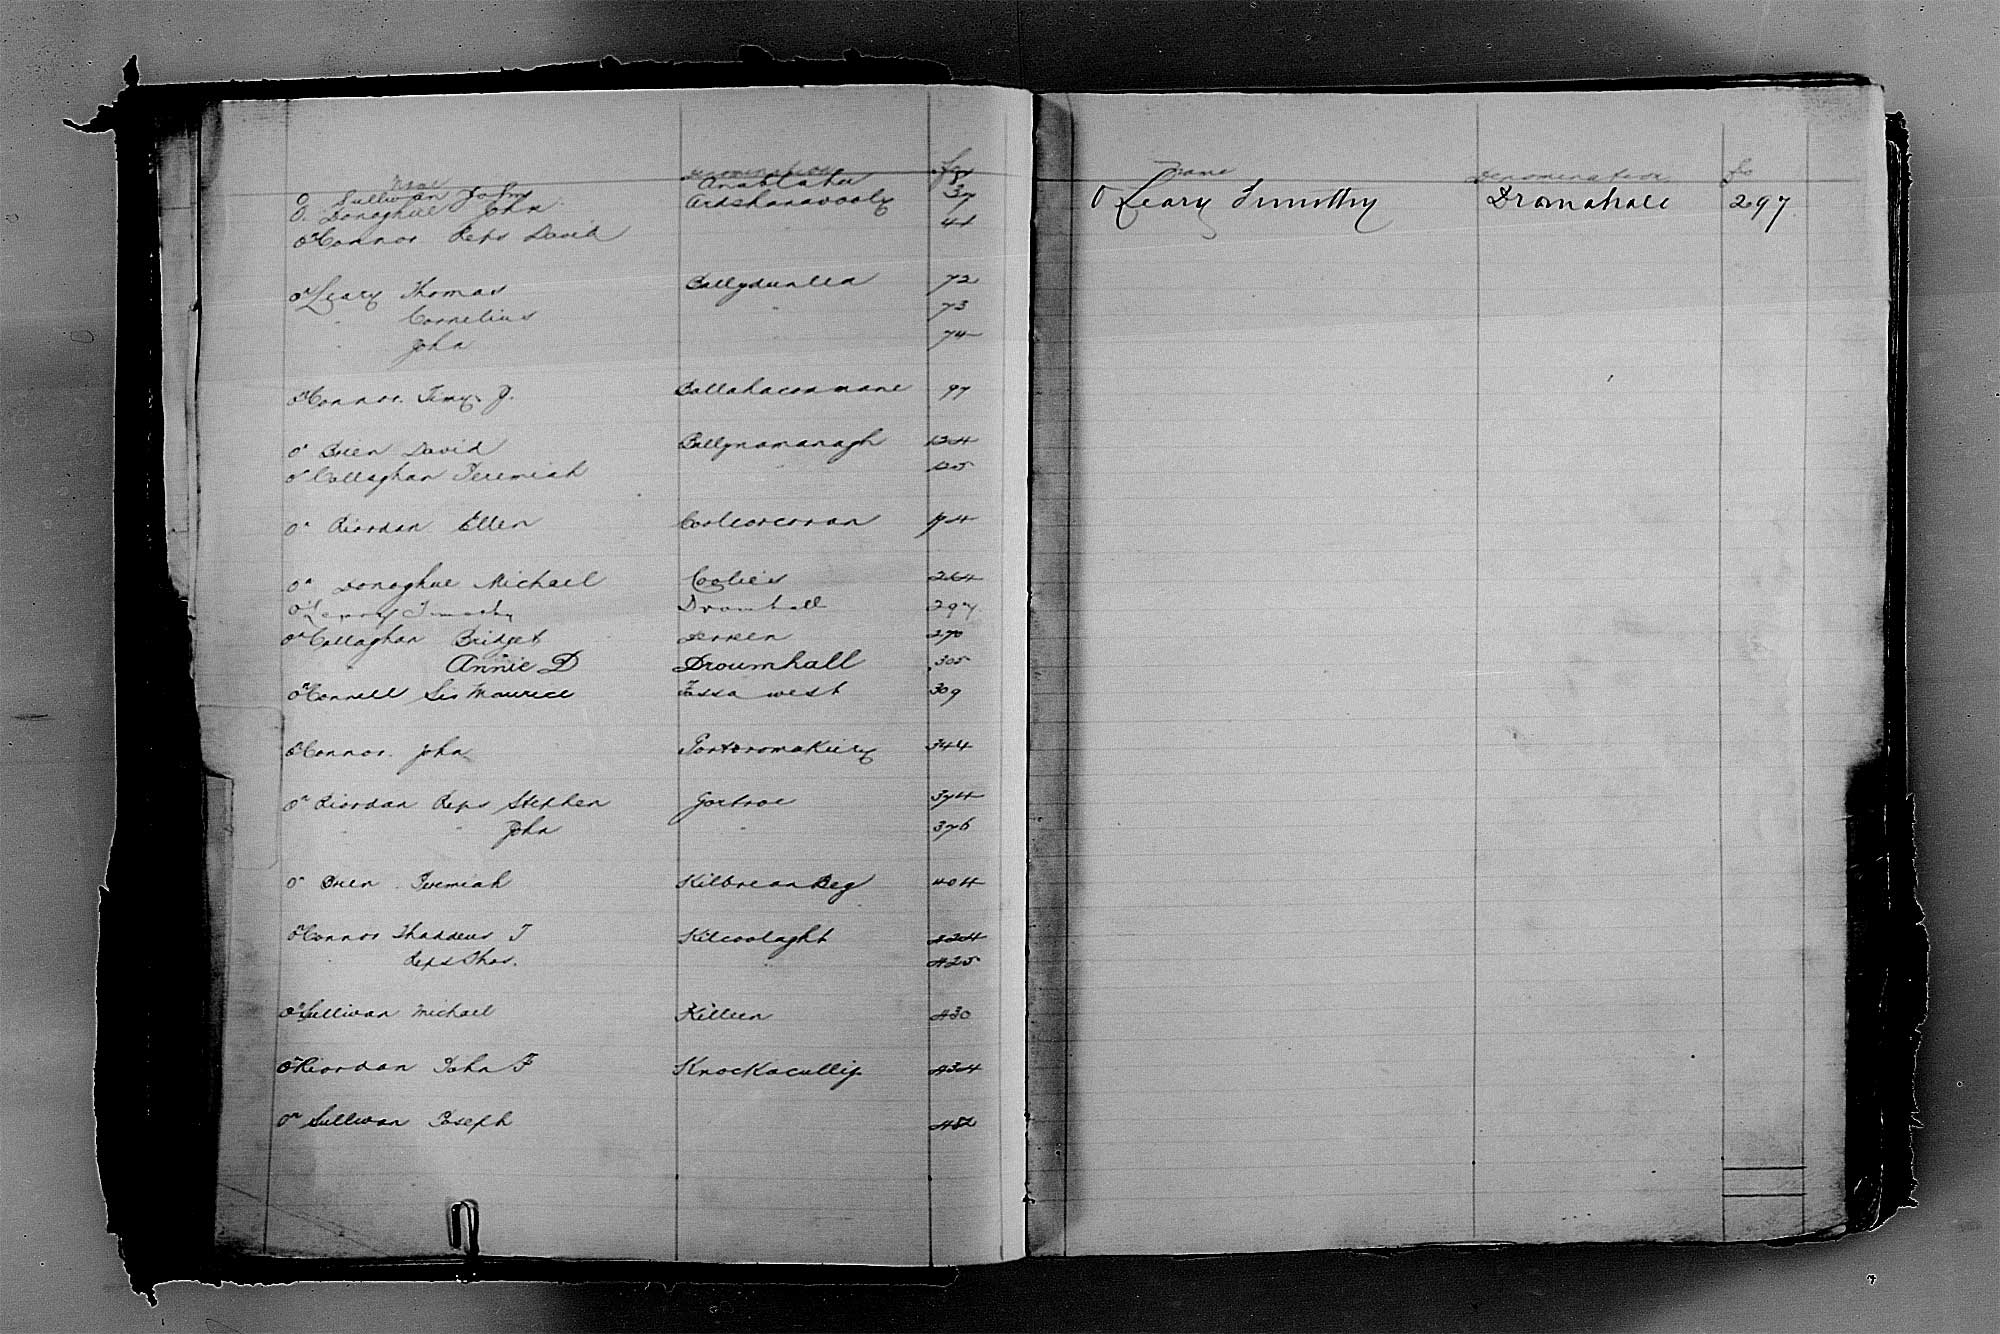 Name Denomination Fo
O Sullivan John Anablaha
O. Donoghue John Ardshanavooly 37
O'Connor Reps David 41
O'Leary Thomas Ballydunlea 72
" Cornelius " 73
" John 74
O'Connor. Timy. D. Ballahacommane 97
O' Brien David Ballynamanagh 124
O' Callaghan Jeremiah 125
O' Riordan Ellen Coolcorcoran 174
O' Donoghue Michael Coolies 264
O'Leary Timothy Dromhall 297
O'Callaghan Bridget Derreen 270
" Annie D Droumhall 305
O'Connell Sir Maurice Fossa west 309
O'Connor. John 344
O' Riordan Reps Stephen Gortroe 374
" " John " 376
O' Brien Jeremiah Kilbrean Beg 404
O'Connor Thaddeus J Kilcoolaght 424
" Reps Thos. " 425
O'Sullivan Michael Killeen 430
O'Riordan John F Knockacullig 434
O' Sullivan Joseph 452
Name Denomination Fo
O Leary Timothy Dromahall 297